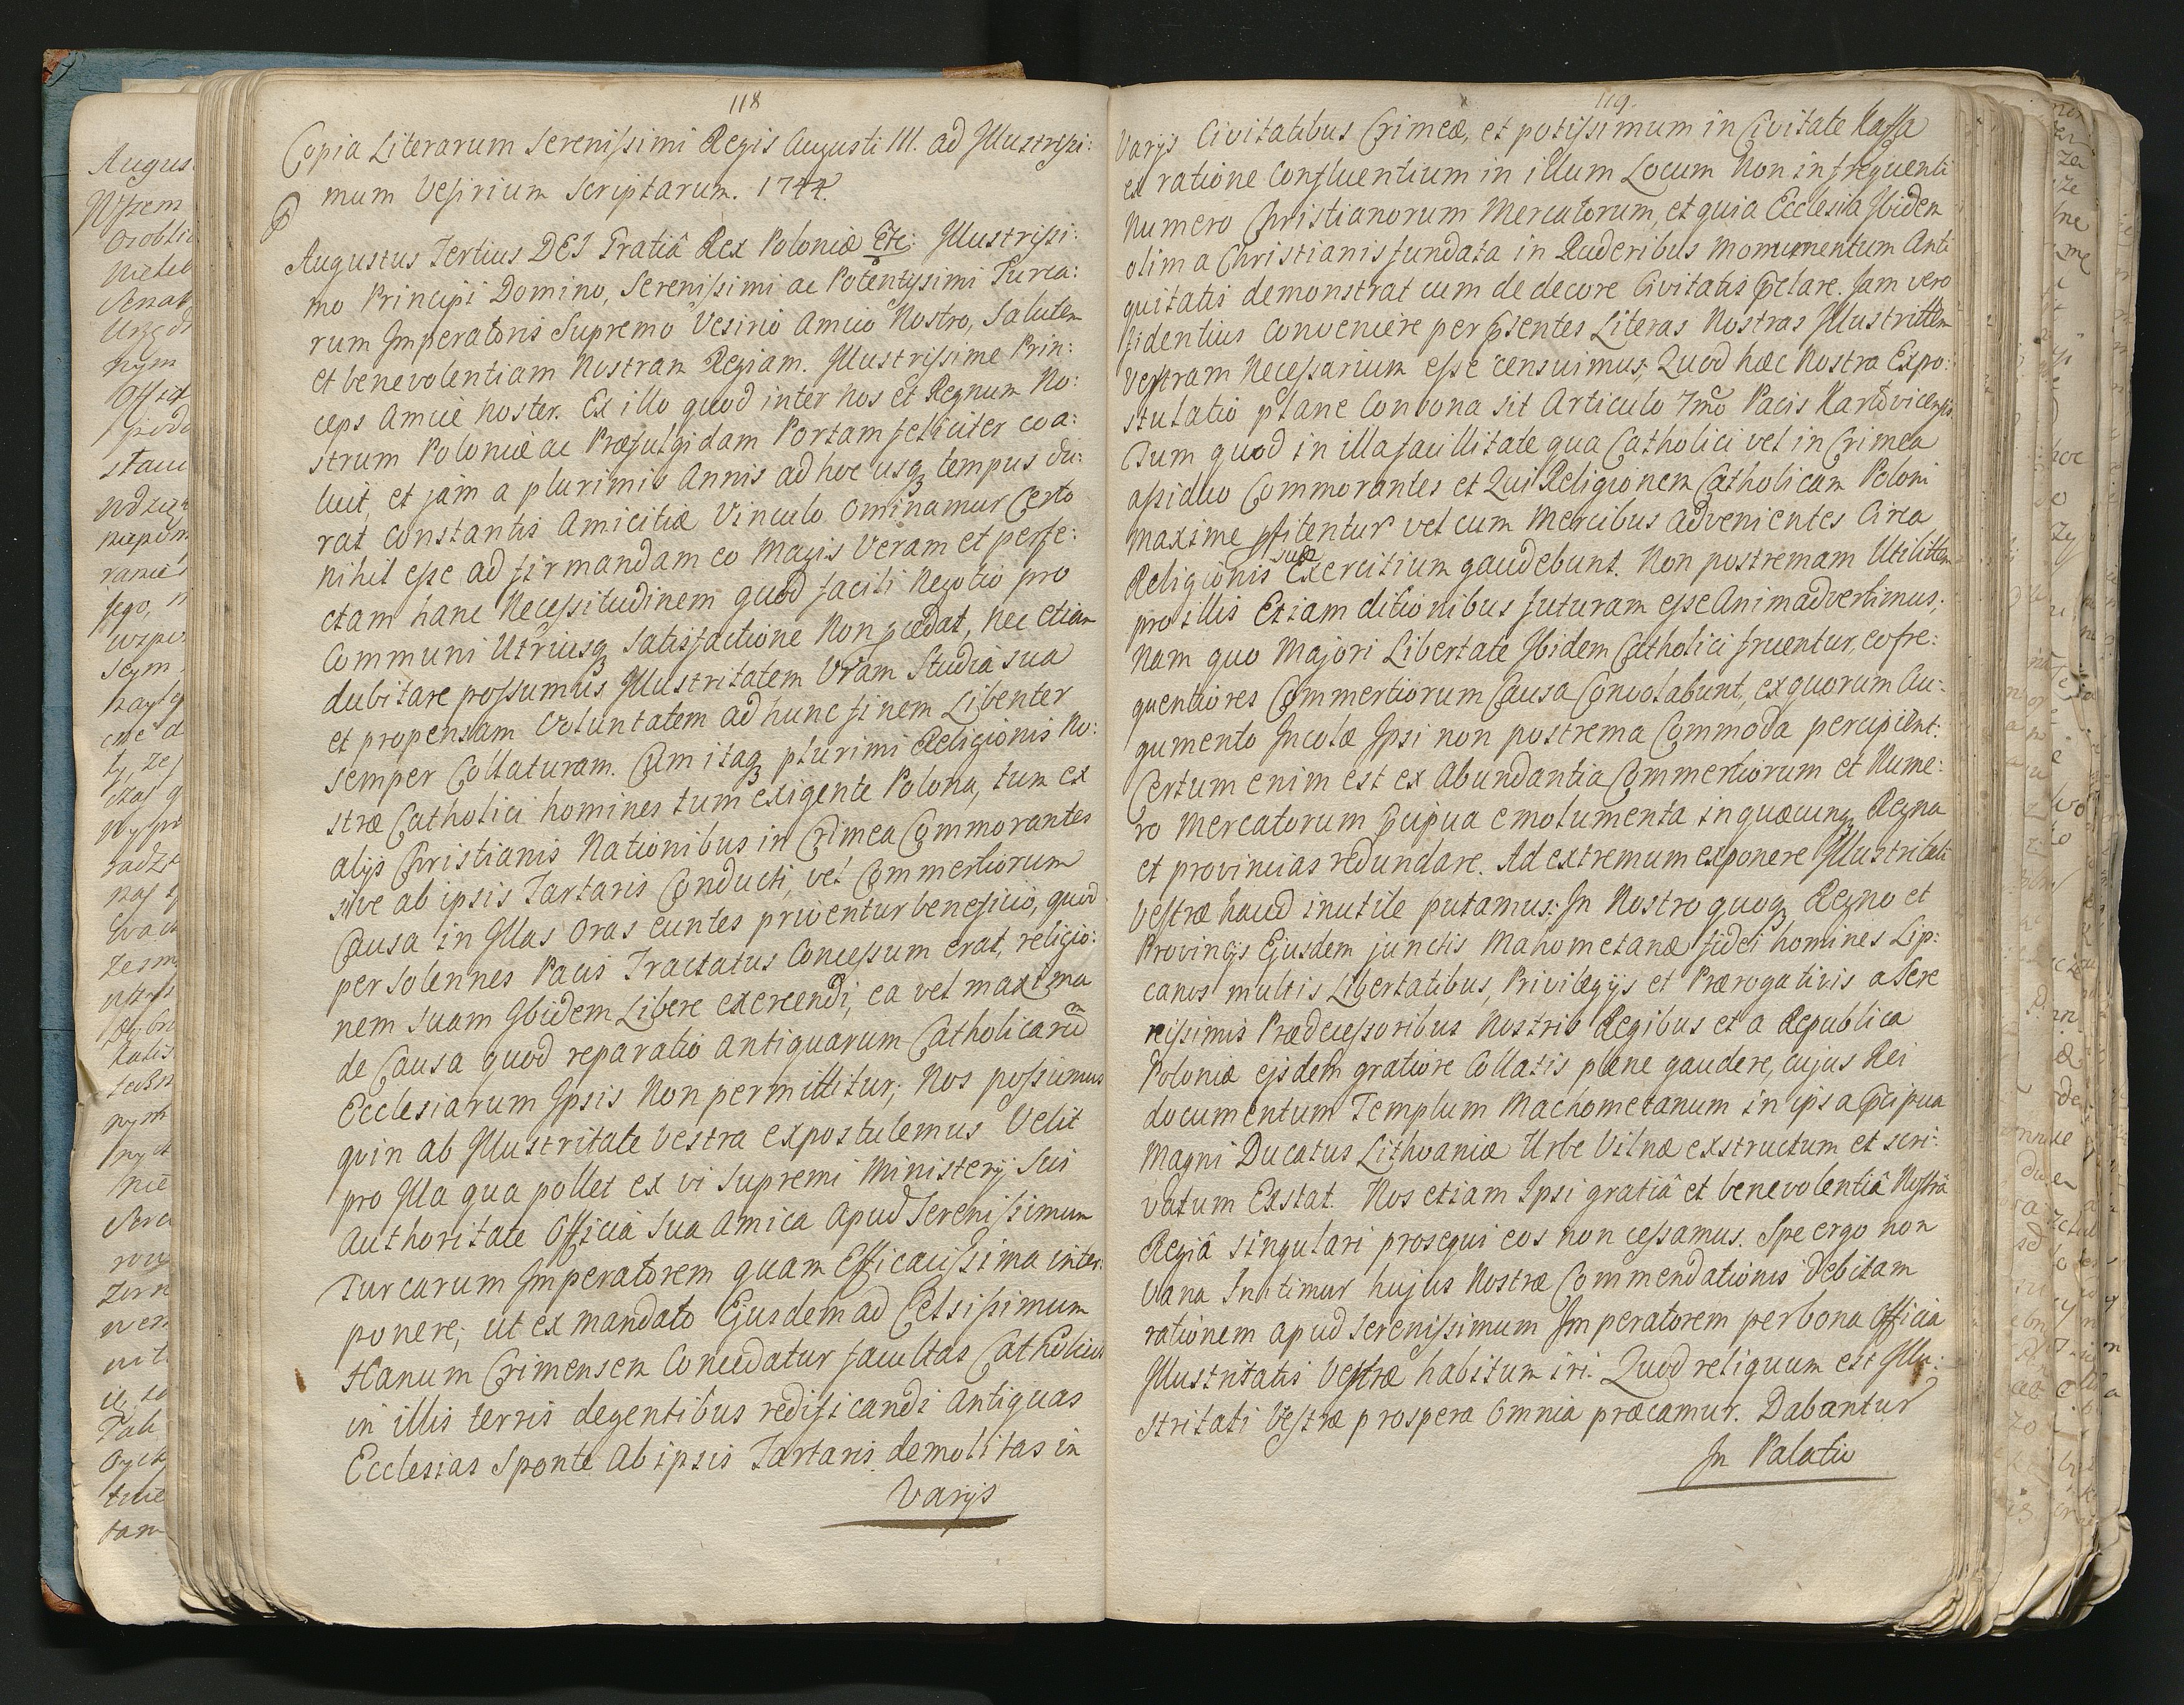 118
Copia Literarum Serenissimi Regis Augusti III. ad Illustrissi:
mum Vesirium Scriptarum. 1744.
Augustus Tertius DEI Gratiâ Rex Poloniæ Etc: Illustrissi:
mo Principi Domino, Serenissimi ac Potentissimi Turca:
rum Imperatoris Supremo Vesirio Amico Nostro, Salutem
et benevolentiam Nostram Regiam. Illustrissime Prin:
ceps Amice noster. Ex illo quod inter Nos et Regnum No:
strum Poloniæ ac Præfulgidam Portam feliciter coa:
luit, et jam a plurimis Annis ad hoc usq3 tempus du:
rat constantis Amicitiæ Vinculo Ominamur Certo
nihil esse ad firmandam eo Magis Veram et perfe:
ctam hanc Necessitudinem quod facili Negotio pro
Communi Utriusq3 Satisfactione Non cedat, Nec etiam
dubitare possumus Illustritatem Vram Studia sua
et propensam Voluntatem ad hunc finem Libenter
semper Collaturam. Cum itaq3 plurimi Religionis No:
stræ Catholici homines tum exigente Polona, tum ex
alijs Christianis Nationibus in Crimea Commorantes
sive ab ipsis Tartaris Conducti, vel Commertiorum
Causa in Illas Oras euntes priventur beneficio, quod
per Solennes Pacis Tractatus Concessum erat, religio:
nem suam Ibidem Libere exercendi, ea vel maxima
de Causa quod reparatio antiquarum Catholicarum
Ecclesiarum Ipsis Non permittitur; Nos possumus
quin ab Illustritate Vestra expostulemus Velit
pro Illa qua pollet ex vi Supremi Ministerij Sui
Authoritate Officia Sua Amica apud Serenissimum
Turcarum Imperatorem quam Efficacissima inter:
ponere; ut ex mandato Ejusdem ad Celsissimum
Hanum Crimensem Concedatur facultas Catholicis
in illis terris degentibus redificandi Antiquas
Ecclesias Sponte Ab ipsis Tartaris demolitas in
Varijs
119.
Varijs Civitatibus Crimeæ, et potissimum in Civitate Kaffa
ex ratione Confluentium in illum Locum Non infrequenti
Numero Christianorum Mercatorum, et quia Ecclesia Ibidem
olim a Christianis fundata in Ruderibus Monumentum Anti
quitatis demonstrat cum dedecore Civitatis Jam vero
fidentius Convenire per Literas Nostras Illustrittem
Vestram Necessarium esse censuimus; Quod hæc Nostra Expo:
stulatio plane Consona sit Articulo 7mo Pacis Karlovicensis
Tum quod in illa facillitate qua Catholici vel in Crimea
assiduo Commorantes et Qui Religionem Catholicam Poloni
maxime vel cum Mercibus advenientes Circa
Religionis suæ Exercitium gaudebunt. Non postremam Utilittem
pro illis Etiam ditionibus futuram esse Animadvertimus;
Nam quo Majori Libertate Ibidem Catholici fruentur, eo fre:
quentiores Commertiorum Causa Convolabunt, ex quorum Au:
gumento Incolæ Ipsi non postrema Commoda percipient:
Certum enim est ex Abundantia Commertiorum et Nume:
ro Mercatorum emolumenta in quæcunq3 Regna
et provincias redundare. Ad extremum exponere Illustritati
Vestræ haud inutile putamus: In Nostro quoq3 Regno et
Provincijs Ejusdem junctis Mahometanæ fidei homines Lip:
canos multis Libertatibus, Privilegijs et Prærogativis a Sere
nissimis Prædecessoribus Nostris Regibus et a Republica
Poloniæ ejsdem gratiore Collatis plene gaudere, cujus Rei
documentum Templum Machometanum in ipsa
Magni Ducatus Lithvaniæ Urbe Vilnæ exstructum et seri:
vatum Exstat. Nos etiam Ipsi gratiâ et benevolentiâ Nostrâ
Regiâ singulari prosequi eos non cessamus. Spe ergo non
Vana Initimur hujus Nostræ Commendationis Debitam
rationem apud Serenissimum Imperatorem per bona Officia
Illustritatis Vestræ habitum iri. Quod reliquum est Illu:
stritati Vestræ prospera Omnia præcamur. Dabantur
In Palatio